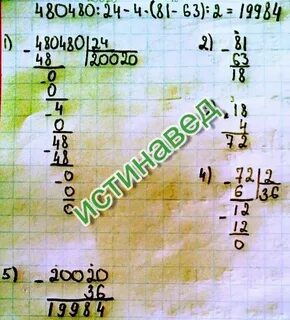 480480:24-4·(81-63):2=19984
1) -480480|24
48 |20020
-0
0
-4
0
48
-48
-0
0
0
2) -81
63
18
18
4
72
4) -72|2
6 |36
-12
12
0
5) -20020
36
19984
истинавед